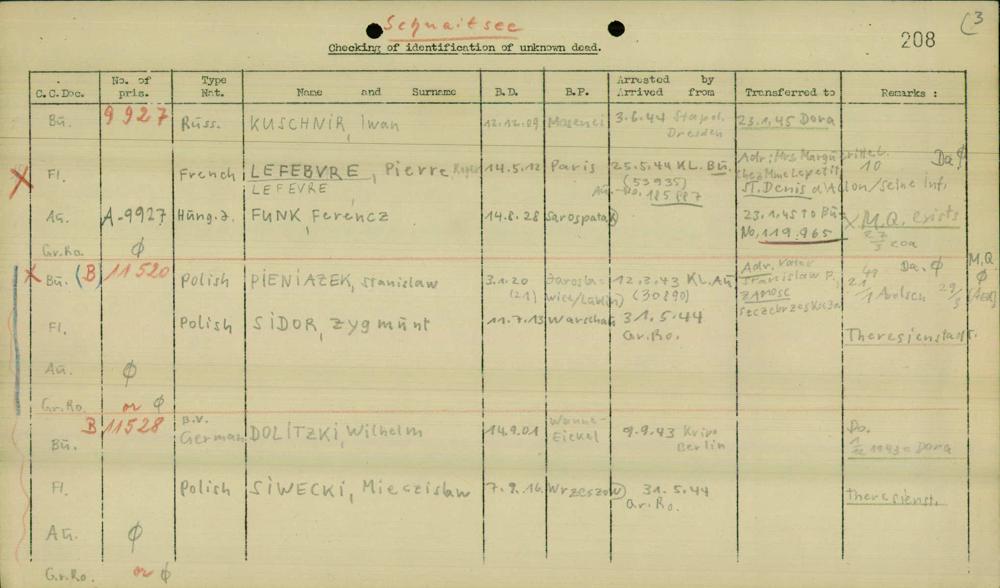 Schnaitsee
Checking of identification of unknown dead.
208
3
C.C.Doc. No. of pris. Type Nat. Name and Surname B.D. B.P. Arrested by Arrived from Transferred to Remarks :
Bu. 9927 Russ. KUSCHNIR, Iwan 12.12.09 3.6.44 Stapol. Dresden 23.1.45 Dora
Fl. French LEFEBVRE, Pierre 14.5.12 Paris 25.5.44 KL. Bu. Adr: Mrs. Da. ø
LEFEVRE (53935) chez Mme Lepetit 10
Au.-No. 185 887 ST. Denis d'Aclon/Seine Inf.
Au. A-9927 Hung.J. FUNK, Ferencz 14.8.28 Sarospatak 23.1.45 to Bu. X M.Q. exists
No. 119.965 27/3
Gr.Ro. ø
X Bu. (B) 11520 Polish PIENIAZEK, Stanislaw 3.1.20 Jaroslawice/Lublin 12.2.43 KL. Au. Adr. Vater Da. ø M.Q. ø
(21) (30890) Stanislaw P., Arolsen 29/3
ZAMOSC
Szczebrzeska 3a
Fl. Polish SIDOR, Zygmunt 11.7.13 Warschau 31.5.44 Theresienstadt.
Gr.Ro.
Au. ø
Gr.Ro. or ø
B 11528 B.V.
Bu. German DOLITZKI, Wilhelm 14.9.01 Wanne-Eickel 9.9.43 Kripo Berlin Do.
1943 = Dora
Fl. Polish SIWECKI, Mieczislaw 7.9.16 Wrzeszow 31.5.44 Theresienst.
Gr.Ro.
Au. ø
Gr.Ro. or ø